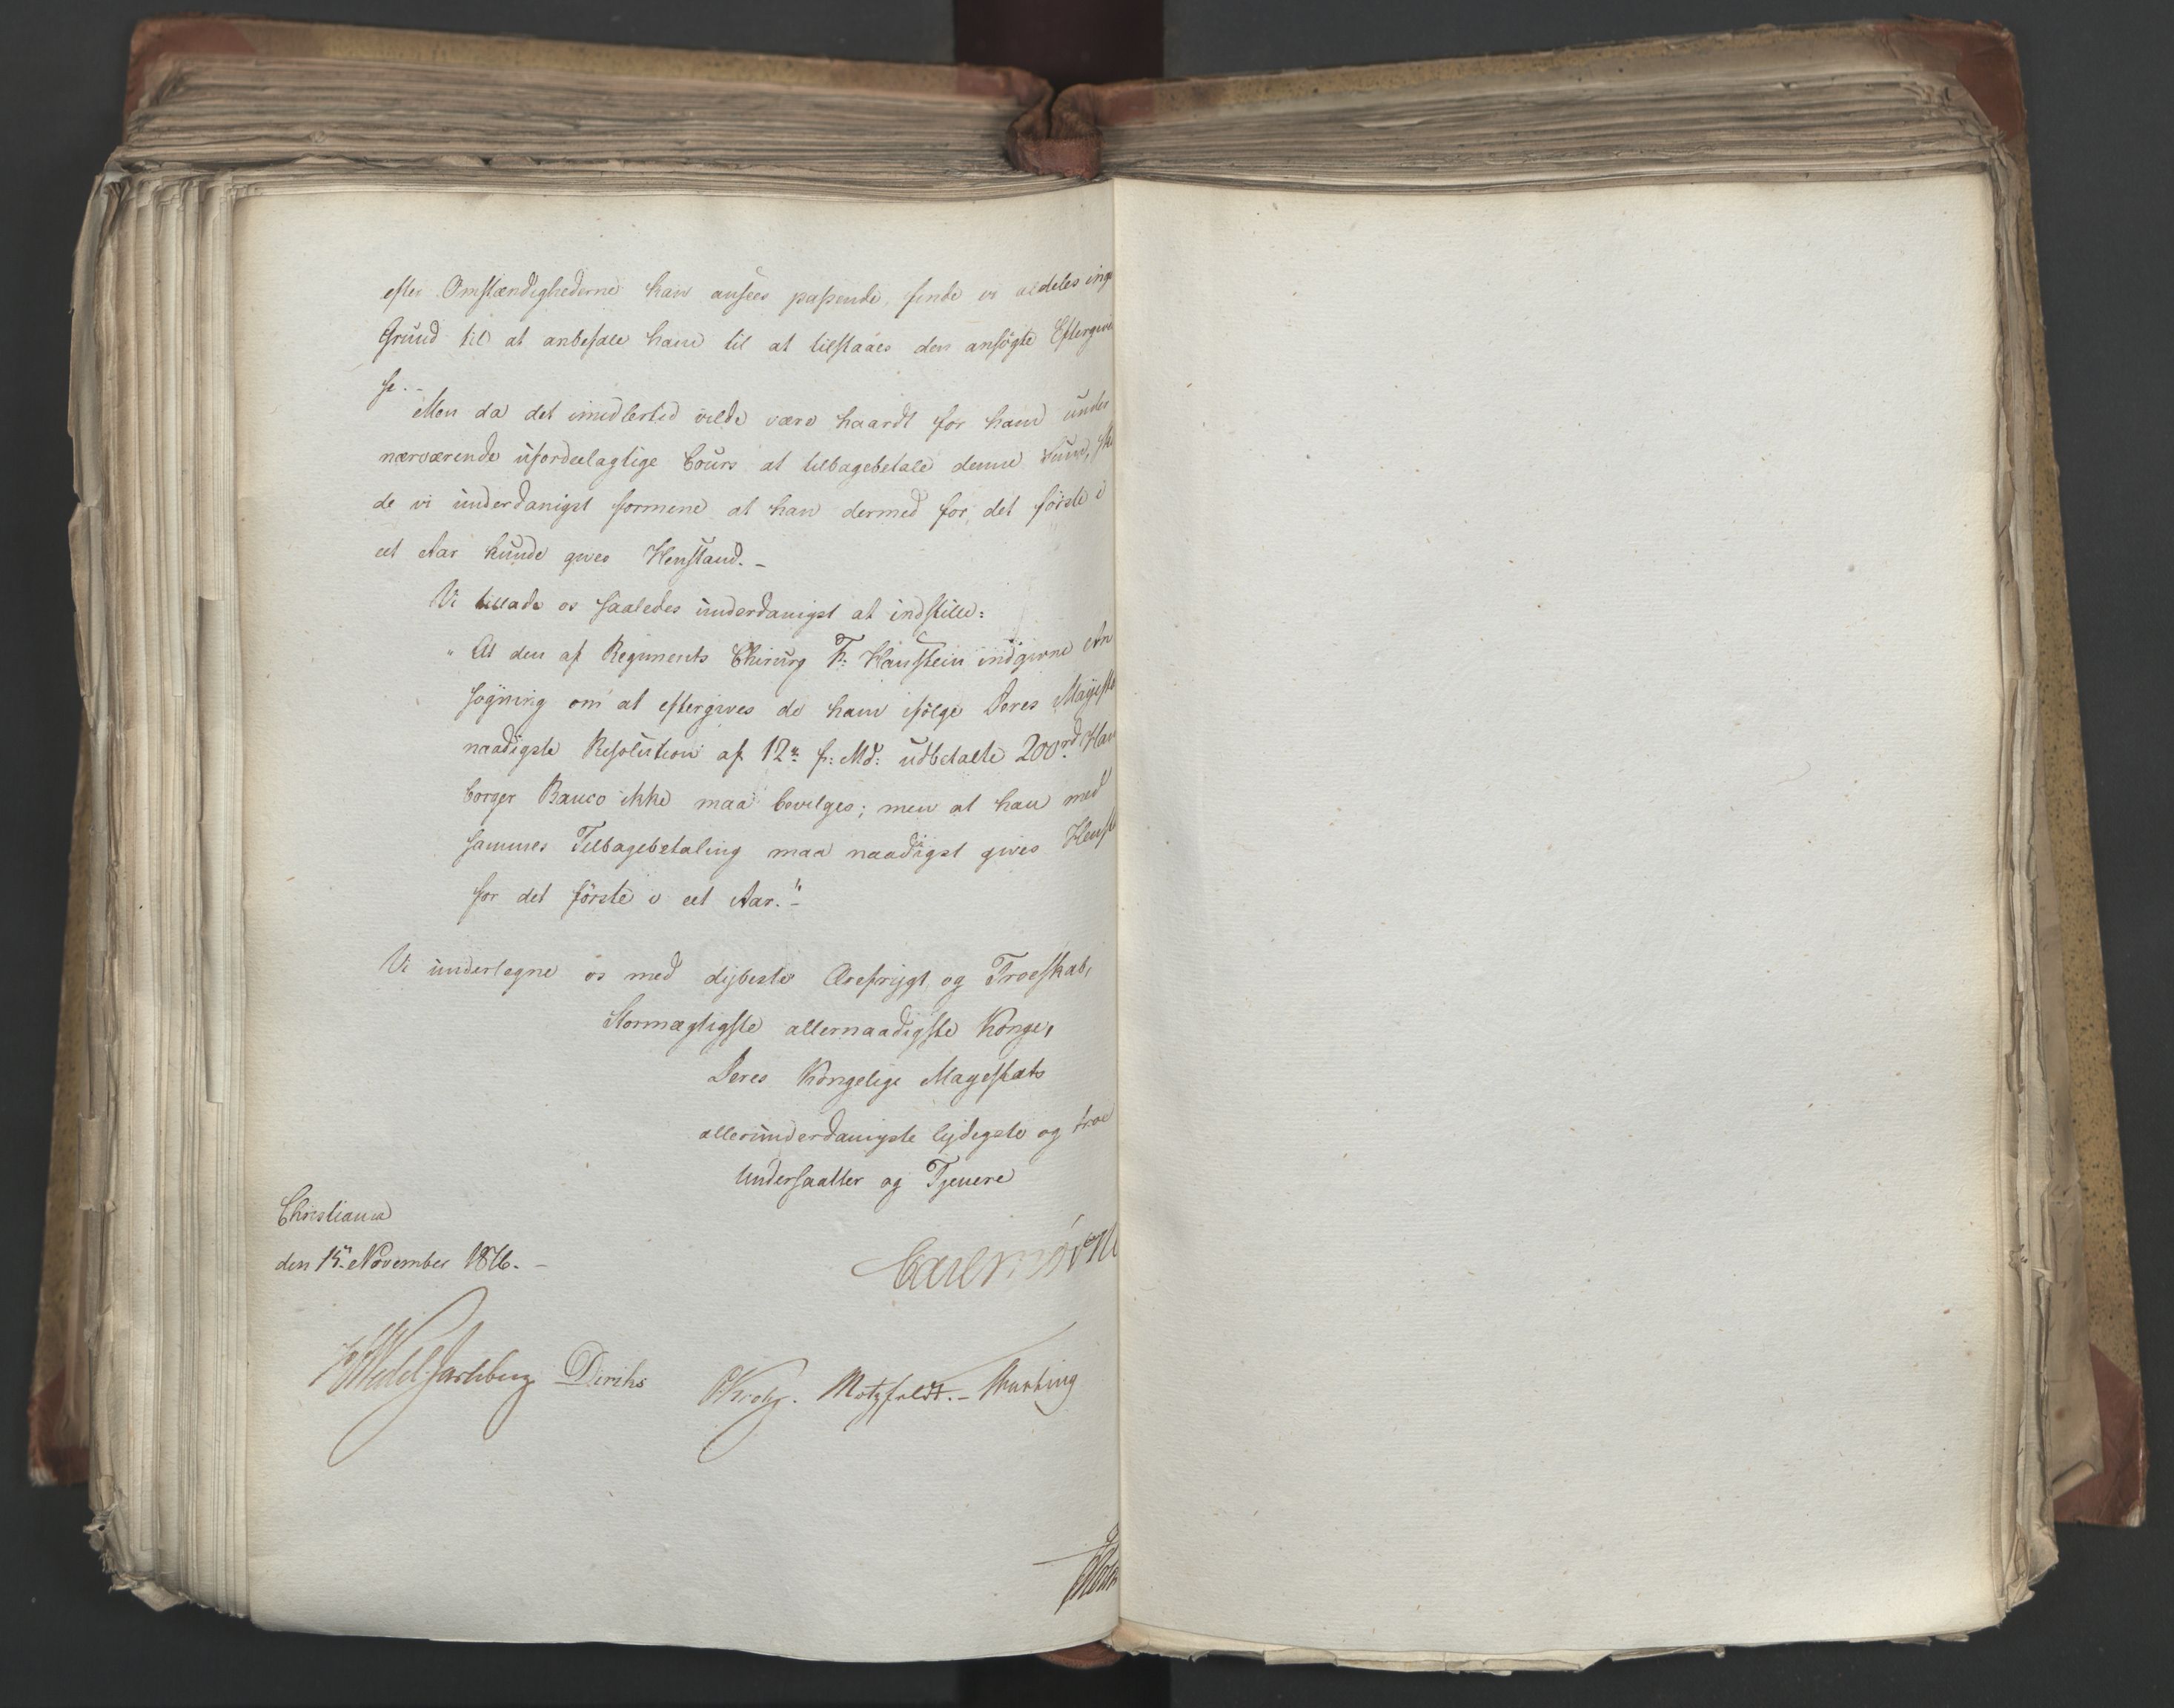 efter Omstændighederne kan ansees passende, finde vi aldeles inge
Grund til at anbefale ham til at tilstaaes den ansøgte Eftergivel
se.-
Men da det imidlertid vilde være haardt for ham under
nærværende ufordeelagtige Cours at tilbagebetale denne Sum,
de vi underdanigst formene at han dermed for det første i
eet Aar kunde gives Henstand.-
Vi tillade os saaledes underdanigst at indstille:
"At den af Regiments Chirurg Fr: Hanstein indgivne An
søgning om at eftergives de ham ifølge Deres Majestæ
naadigste Resolution af 12te f: Md: udbetalte 200rd Ham
borger Banco ikke maa bevilges; men at han med
sammes Tilbagebetaling maa naadigst gives Henst
for det første i eet Aar."-
Vi undertegne os med dybeste Ærefrygt og Troeskab,
Stormægtigste allernaadigste Konge,
Deres Kongelige Majestæts
allerunderdanigste lydigste og troe
Undersaatter og Tjenere
Christiania
den 15 November 1816.-
Carl Mörne
Wedel Jarlsberg Diriks Krohg. Motzfeldt.-